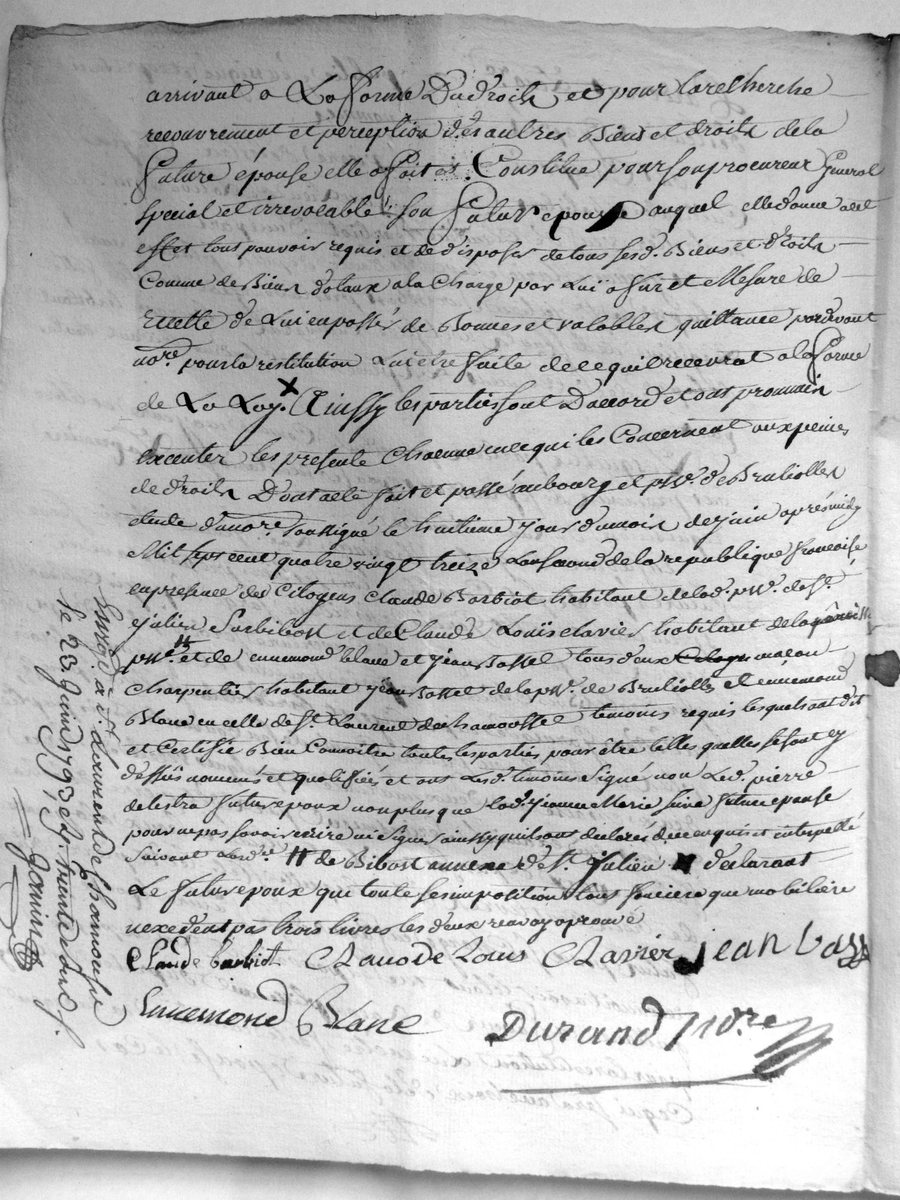 arrivant a La forme Du droits et pour la recherche
recouvrement et perception d'es autres Biens et droits de la
future épouse elle a fait et Constitue pour son procureur General
special et irrevocable son futur epoux auquel elle donne a cet
effet tous pouvoir requis et de disposer de tous ses d. Biens et droits
Comme de Biens dotaux a la Charge par Luÿ a fur et Mesure de
recette de Lui en passer de Bonnes et valables quittance pardevant
nore. pour la restitution Lui etre faite de ce quil recevrat a la forme
de La Loy. Ainssy les parties sont D'accord et ont promis
Executer les presente Chacune en ce qui les Concernent aux peines
de droits D'ont acte fait et passé au bourg et psse. de Brulliolles
etude du nore. soussigné le huitieme jour du mois de juin aprés midy
Mil sept cent quatre vingt treize L'an second de la republique francoise
en presence des Citoyens Claude Barbiot habitant de lad. psse. de St.
julien sur bibost et de Claude Louis clavier habitant de la paroisse
psse. # et de ennemond blanc et jean Bassel tous deux maçon
Charpentier habitant jean Bassel de la psse. de Brulliolles et ennemond
Blanc en celle de St. Laurent de chamousset temoins requis lesquels ont dit
et Certifié Bien Connoitre toutes les parties pour être telles quelles se sont cy
dessus nommés et qualifiées et ont Lesd. temoins signé non Led. pierre
delestra futur epoux non plus que lad. jeanne Marie future epouse
pour ne pas savoir ecrire ni signer ainssy quils ont declarés de ce enquis et interpellé
suivant Lordre. # de Bibost annexe de St. julien x declarant
Le futur epoux que toute ses imposition tous fonciere que mobiliére
nexedent pas trois livres les deux renvoy aprouvé
Claude barbiot Claude Louis Clavier jean bassel
Ennemond Blanc Durand nore
Enreg. à St. Laurent de Chamousset
le 23 juin 1793 et. trente sous
Janin